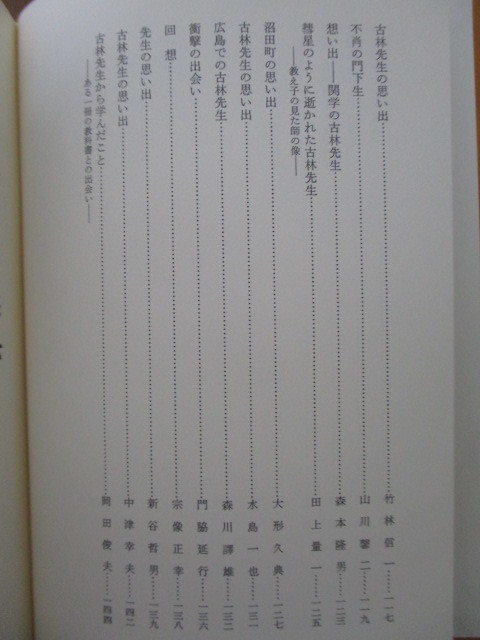 古林先生の思い出……竹林信一……一一七
不肖の門下生……山川馨二……一一九
想い出――関学の古林先生……森本隆男……一二三
彗星のように逝かれた古林先生……田上量一……一二五
――教え子の見た師の像――
沼田町の思い出……大形久典……一二七
古林先生の思い出……水島一也……一三一
広島での古林先生……森川譯雄……一三二
衝撃の出会い……門脇延行……一三六
回想……宗像正幸……一三八
先生の思い出……新谷哲男……一三九
古林先生の思い出……中津幸夫……一四二
古林先生から学んだこと……岡田俊夫……一四四
――ある一冊の教科書との出会い――